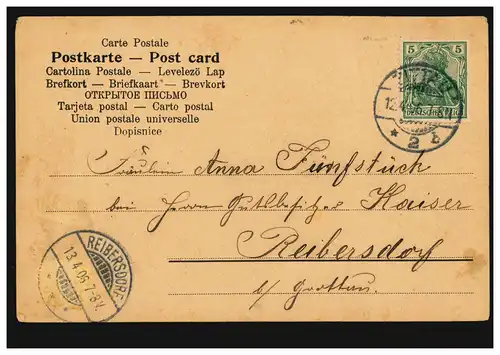 Carte Postale
Postkarte — Post card
Cartolina Postale — Levelező Lap
Brefkort — Briefkaart — Brevkort
ОТКРЫТОЕ ПИСЬМО
Tarjeta postal — Carto postal
Union postale universelle
Dopisnice
5 5
DEUTSCHES REICH
12.4.06
* 2 b
Fräulein Anna Fünfstück
bei Herrn Guthsbesitzer Kaiser
Reibersdorf
b/ Grottau.
REIBERSDORF
13.4.06. 7-8V.